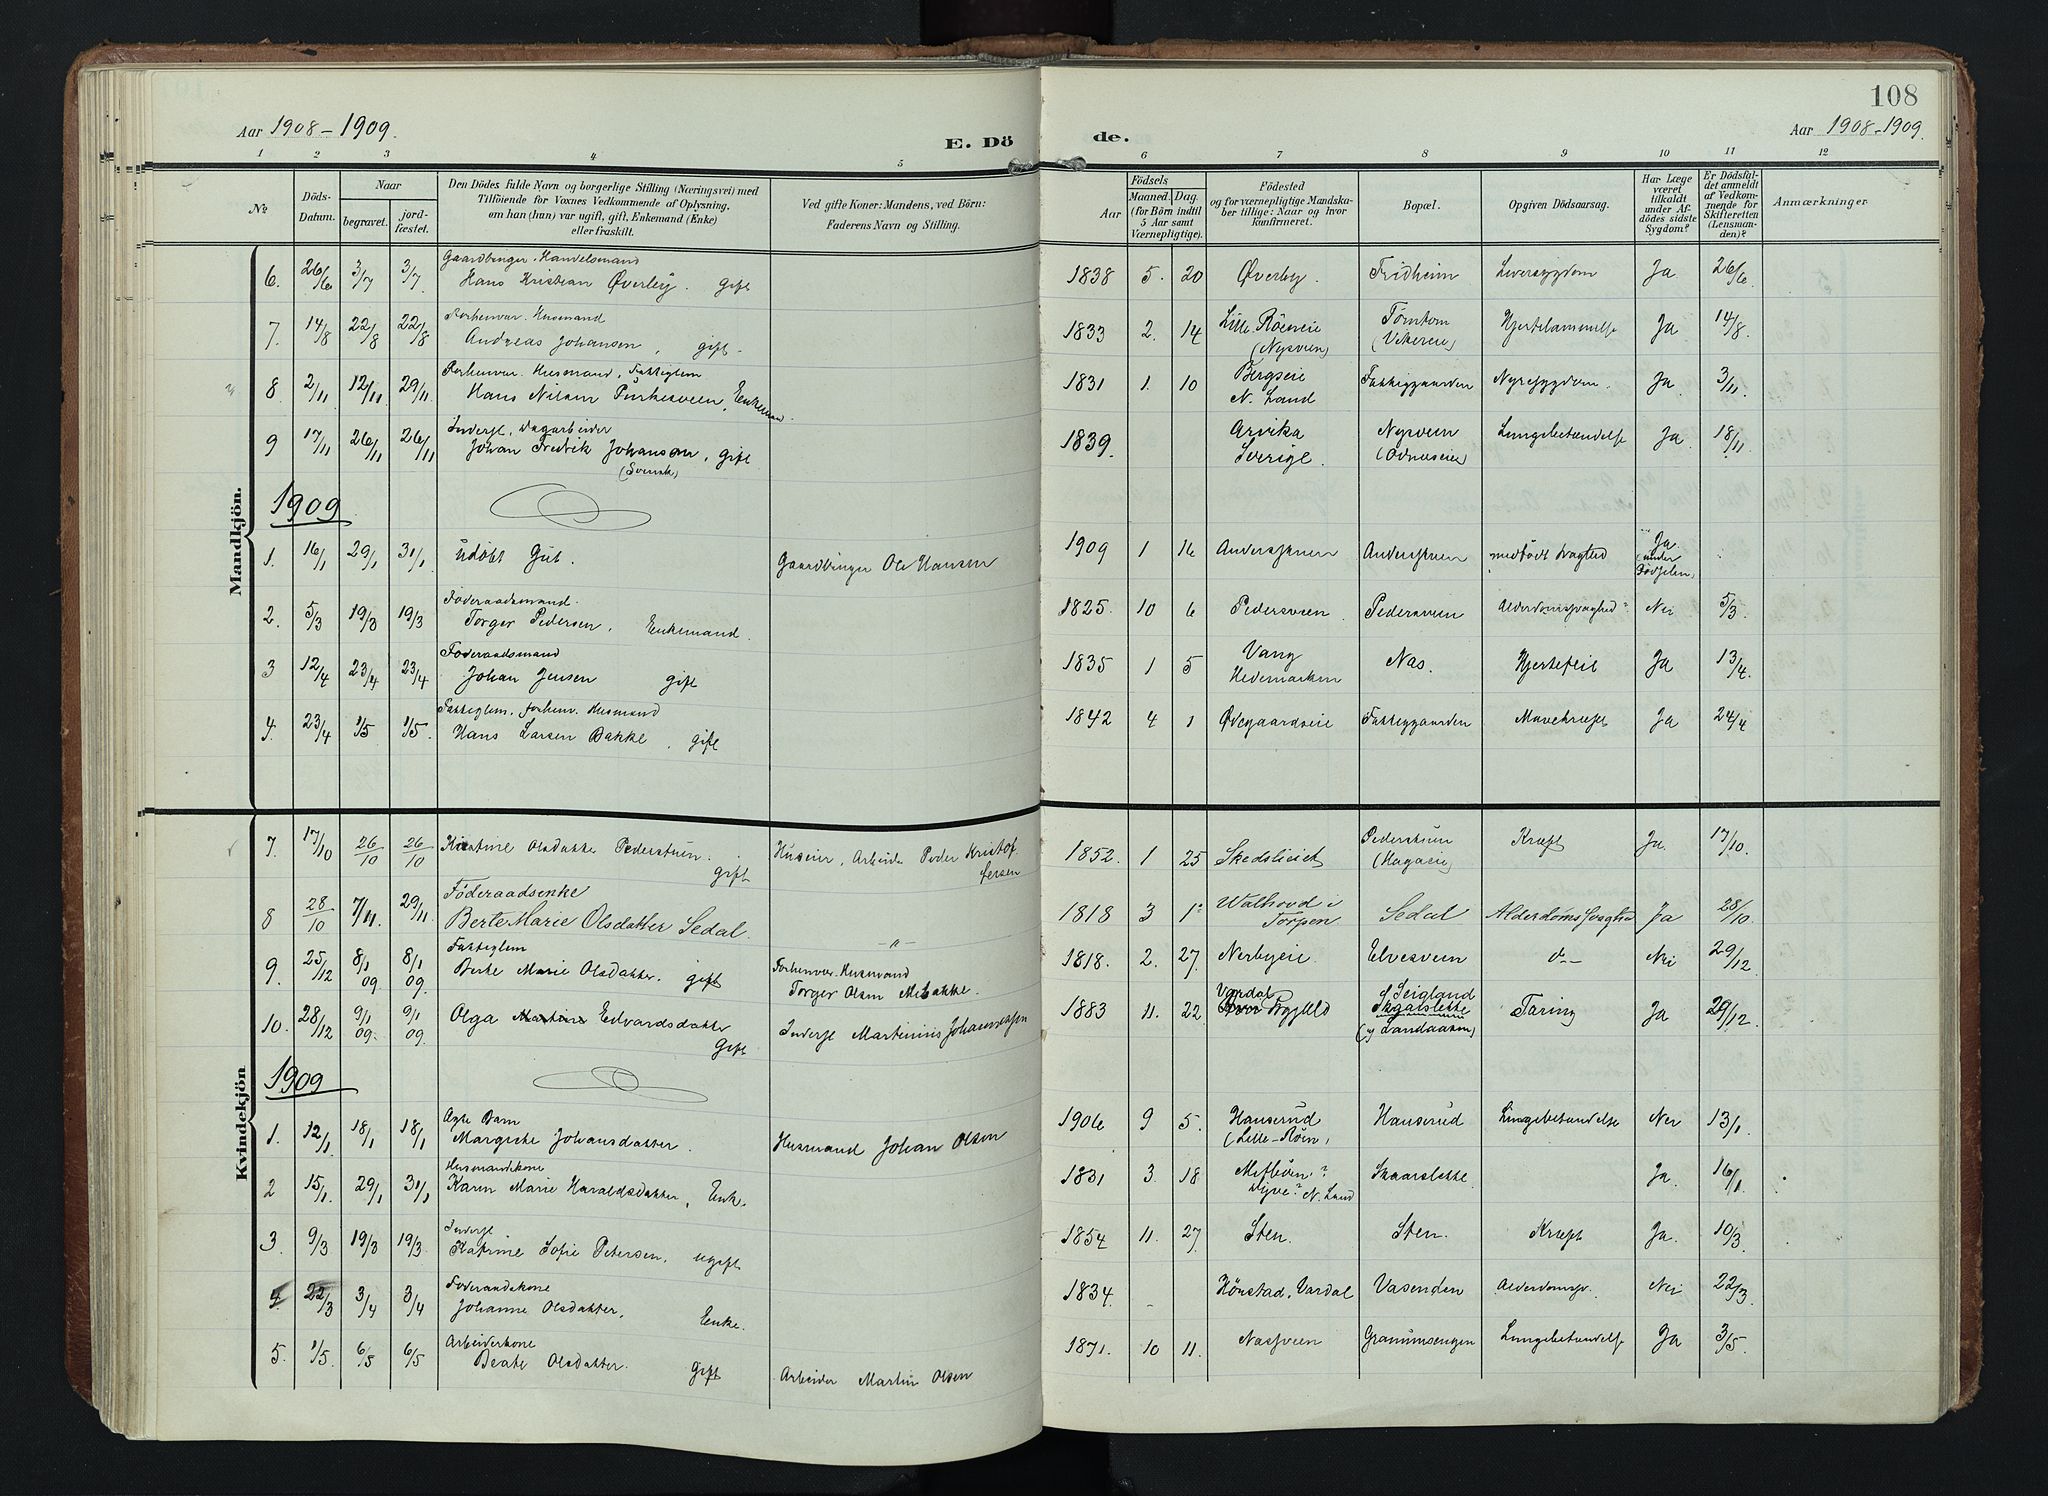 108
Aar 1908-1909.
E. Dö
de.
Aar 1908-1909.
1 2 3 4 5 6 7 8 9 10 11 12
№
Döds-Datum.
Naar
begravet.
jord-fæstet.
Den Dödes fulde Navn og borgerlige Stilling (Næringsvei) med
Tilföiende for Voxnes Vedkommende af Oplysning,
om han (hun) var ugift, gift, Enkemand (Enke)
eller fraskilt.
Ved gifte Koner: Mandens, ved Börn:
Faderens Navn og Stilling.
Födsels
Aar
Maaned. Dag.
(for Börn indtil
5 Aar samt
Værnepligtige).
Födested
og for værnepligtige Mandska-
ber tillige: Naar og hvor
konfirmeret.
Bopæl.
Opgiven Dödsaarsag.
Har Læge
været
tilkaldt
under Af-
dödes sidste
Sygdom?
Er Dödsfal-
det anmeldt
af Vedkom-
mende for
Skifteretten
(Lensman-
den)?
Anmærkninger
Mandkjön.
Gaardbruger. Handelsmand
6. 26/6 3/7 3/7 Hans Kristian Øverby. gift 1838 5. 20 Øverby. Fridheim Leversygdom Ja. 26/6.
Forhenvær. Husmand
7. 14/8 22/8 22/8 Andreas Johansen, gift 1833 2. 14 Lille Röeneie (Nysveen) Tömtom (Vikereie) Hjertelammelse Ja 14/8.
Forhenvær. Husmand, Fattiglem
8. 2/11 12/11 29/11 Hans Nilsen Purkesveen, Enkeman. 1831 1. 10 Bergseie N. Land Fattiggaarden Nyresygdom. Ja. 3/11.
Inderst, Dagarbeider
9 17/11 26/11 26/11 Johan Fredrik Johanson, gift (Svensk) 1839. Arvika Sverige. Nysveen (Odneseie) Lungebetændelse Ja. 18/11.
1909
1. 16/1 29/1 31/1 Udøbt Gut. Gaardbruger Ole Hansen 1909 1 16 Anderstuen Anderstuen medfödt svaghed Ja. (under Födselen)
Föderaadsmand.
2. 5/3 19/3 19/3 Torger Pedersen, Enkemand. 1825. 10 6 Pedersveen Pedersveen Alderdomssvaghed? Nei 5/3.
Föderaadsmand
3 12/4 23/4 23/4 Johan Jensen gift 1835 1 5 Vang Hedemarken Nas. Hjertefeil Ja 13/4.
Fattiglem, forhenv. Husmand
4. 23/4 1/5 1/5. Hans Larsen Bakke, gift 1842 4 1 Ödegaardseie Fattiggaarden Mavekræft Ja 24/4
Kvindekjön
7. 17/10 26/10 26/10 Kristine Olsdatter Pederstuen. gift Huseier, Arbeider Peder Kristoffersen 1852. 1 25 Skedslieiet Pederstuen (Hagaeie) Kræft Ja. 17/10.
Föderaadsenke
8 28/10 7/11. 29/11 Berte Marie Olsdatter Sedal. -"- 1818 3 1. Walhovd i Torpen Sedal Alderdoms Svaghed Ja 28/10.
Fattiglem
9. 25/12 8/1 09. 8/1 09. Berte Marie Olsdatter. gift Forhenvær. Husmand Torger Olsen Melbakke. 1818. 2. 27. Nerbyeie Elvesveen d-- Nei 29/12
10. 28/12 9/1 09. 9/1 09. Olga Martine Edvardsdatter Gift Inderst Martinius Johannessen 1883 11. 22 Vardal Seigland Skgatslette Tæring Ja 29/12.
1909
Ægte Barn
1. 12/1 18/1 18/1 Margrethe Johansdatter. Husmand Johan Olsen 1906 9 5. Hanserud (Lille-Röen) Hanserud Lungebetændelse Nei 13/1
Husmandskone
2 15/1. 29/1 31/1 Karen Marie Haraldsdatter, Enk. 1831 3. 18 N. Land Skaarslette. Ja. 16/1.
Inderst
3. 9/3 19/3 19/3 Katrine Sofie Petersen, ugift 1854 11. 27. Sten. Sten. Kræft Ja. 10/3.
Föderaadskone
4 22/3 3/4 3/4 Johanne Olsdatter, Enke. 1834. - Hönstad, Vardal Vasenden Alderdomssv. Nei 22/3.
Arbeiderkone
5. 1/5. 6/5 6/5 Beate Olsdatter. Gift Arbeider Martin Olsen 1871. 10 11. Nasveen Granumsengen Lungebetændelse Ja 3/5.